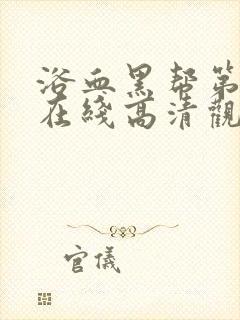 浴血黑帮第
在綫高清觀
官儀